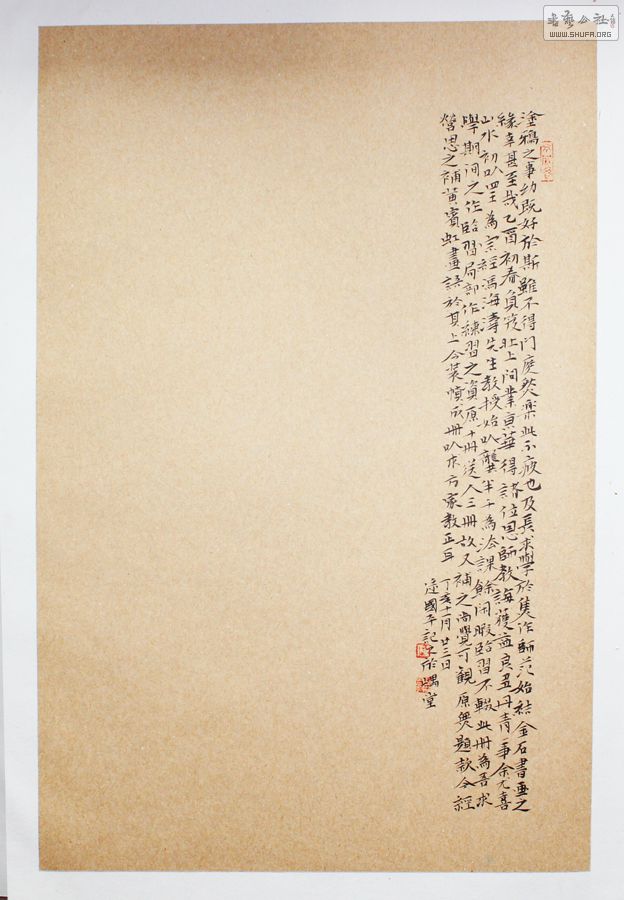 塗鴉之事幼既好於斯雖不得門庭然樂此不疲也及長求學於焦作師范始結金石書畫之
緣幸甚至哉乙酉初春負笈北上問業京華得諸位恩師教誨獲益良多丹青一事余尤喜
山水初以四王為宗經馮海濤先生教授始以龔半千為法課餘閑暇臨習不輟此冊為吾求
學期間之作臨習局部作練習之資原十冊送人三冊故又補之尚覺可觀原無題款今經
營思之補黃賓虹畫語於其上今裝幀成冊以求方家教正耳
丁亥十一月廿三日
國平記於 堂
书艺公社
WWW.SHUFA.ORG